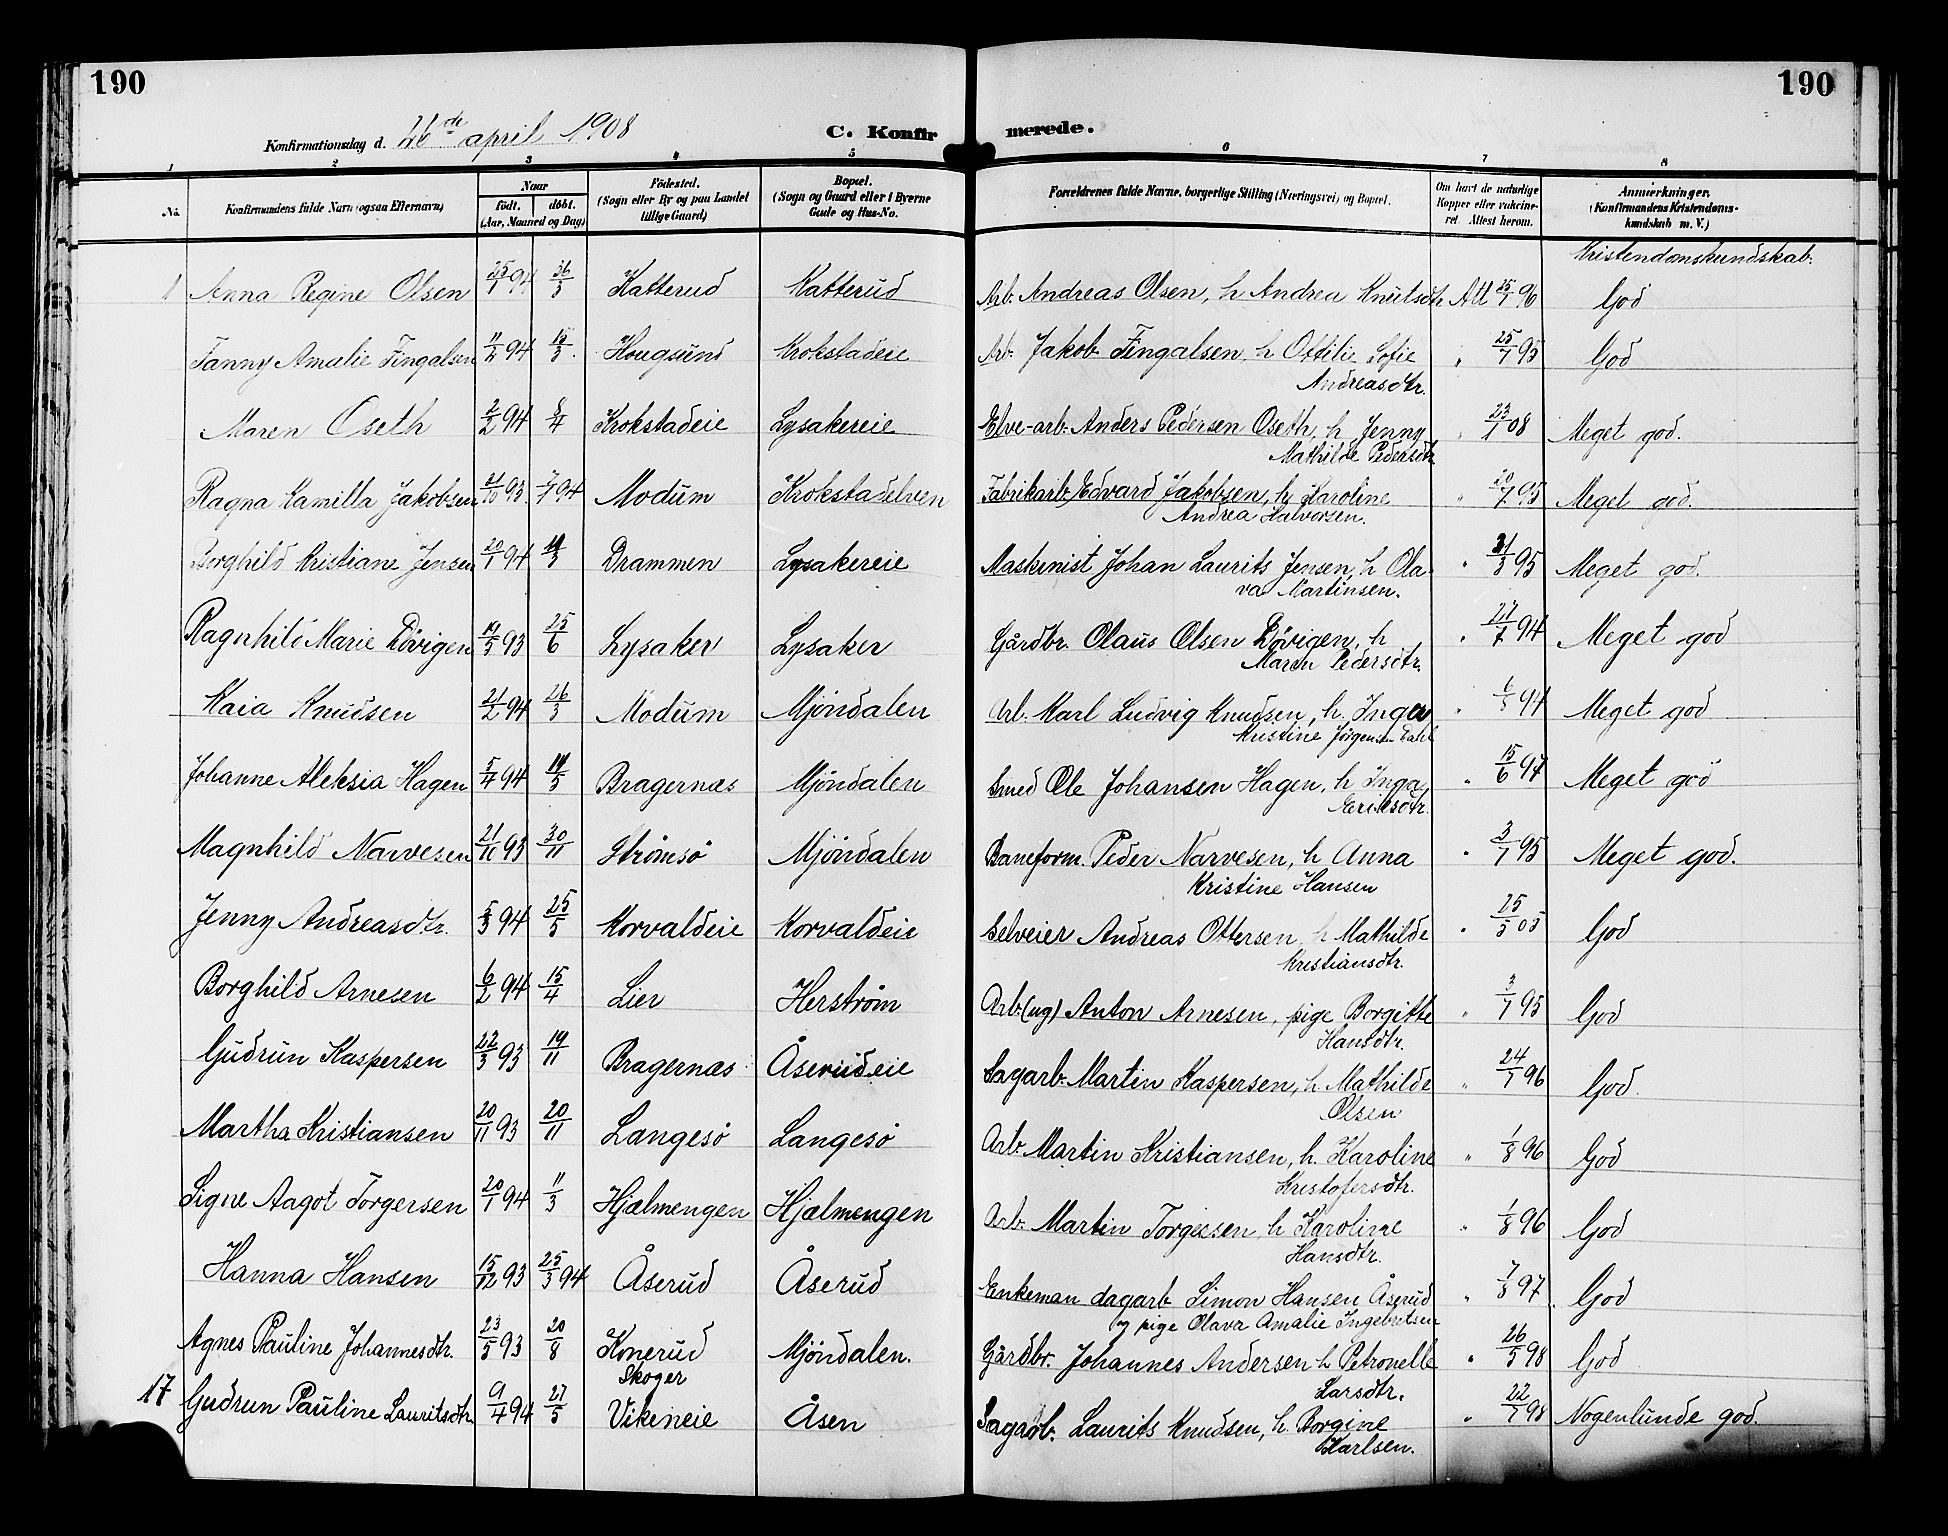 190
190
Konfirmationsdag d. 26de april 1908
C. Konfir merede.
1 2 3 4 5 6 7 8
No.
Konfirmandens fulde Navn (ogsaa Efternavn)
Naar
født. døbt.
(Aar, Maaned og Dag)
Fødested.
(Sogn eller By og paa Landet
tillige Gaard)
Bopæl.
(Sogn og Gaard eller i Byerne
Gade og Hus-No.
Forældrenes fulde Navne, borgerlige Stilling (Næringsvei) og Bopæl.
Om havt de naturlige
Kopper eller vakcine-
ret Attest herom.
Anmærkninger.
(Konfirmandens Kristendoms-
kundskab m. V.)
Kristendomskundskab.
1 Anna Regine Olsen 25/1 94 26/3 Katterud Katterud Arb. Andreas Olsen, h Andrea Knutsdtr Att 25/7 96 God
Fanny Amalie Fingalsen 11/2 94 15/3 Hougsund Krokstadeie Arb. Jakob Fingalsen, h Ottilie Sofie " 25/7 95 God
Andreasdtr.
Maren Oseth 2/2 94 8/4 Krokstadeie Lysakereie Elve-arb. Anders Pedersen Oseth, h. Jenny " 23/1 08 Meget god.
Mathilde Pedersdtr
Ragna Kamilla Jakobsen 21/10 93 7/1 94 Modum Krokstadelven Fabrikarb. Edvard Jakobsen, h Karoline " 20/7 95 Meget god.
Andrea Halvorsen.
Borghild Kristiane Jensen 20/1 94 11/3 Drammen Lysakereie Maskinist Johan Laurits Jensen, h Ola- " 31/3 95 Meget god.
va Martinsen.
Ragnhild Marie Dövigen 19/5 93 25/6 Lysaker Lysaker Gårdbr. Olaus Olsen Dövigen, h " 27/7 94 Meget god
Maren Pedersdtr.
Kaia Knudsen 21/2 94 26/3 Modum Mjöndalen Arb. Karl Ludvig Knudsen, h. Inga " 94 Meget god
Kristine Jörgensen Dahl
Johanne Aleksia Hagen 5/4 94 14/5 Bragernæs Mjöndalen Smed Ole Johansen Hagen, h Inga " 15/6 97 Meget god
Eriksdtr.
Magnhild Narvesen 21/10 93 30/11 Strømsø Mjöndalen Baneform. Peder Narvesen, h Anna " 3/7 95 Meget god.
Kristine Hansen
Jenny Andreasdtr. 5/3 94 25/5 Korvaldeie Korvaldeie Selveier Andreas Ottersen, h Mathilde " 25/5 05 God
Kristiansdtr.
Borghild Arnesen 6/2 94 15/4 Lier Herström Arb. (ug) Anton Arnesen, pige Borgitte " 3/7 95 God
Hansdtr.
Gudrun Kaspersen 22/3 93 19/11 Bragernæs Åserudeie Sagarb. Martin Kaspersen, h. Mathilde " 24/7 96 God.
Olsen
Martha Kristiansen 20/11 93 20/11 Langesö Langesö Arb. Martin Kristiansen, h. Karoline " 1/8 96 God
Kristofersdtr.
Signe Aagot Torgersen 20/1 94 11/3 Hjælmengen Hjælmengen Arb. Martin Torgersen, h Karoline " 1/8 96 God
Hansdtr.
Hanna Hansen 15/12 93 25/3 94 Åserud Åserud Enkeman dagarb. Simon Hansen Åserud " 7/8 97 God
og pige Olava Amalie Ingebretsen
Agnes Pauline Johannesdtr. 23/5 93 20/8 Konerud Mjöndalen. Gårdbr. Johannes Andersen h Petronelle " 26/5 98 God
Skoger Larsdtr.
17 Gudrun Pauline Lauritsdtr 9/4 94 27/5 Vikeneie Åsen Sagarb. Laurits Knudsen, h. Borgine " 22/7 98 Nogenlunde god.
Karlsen.